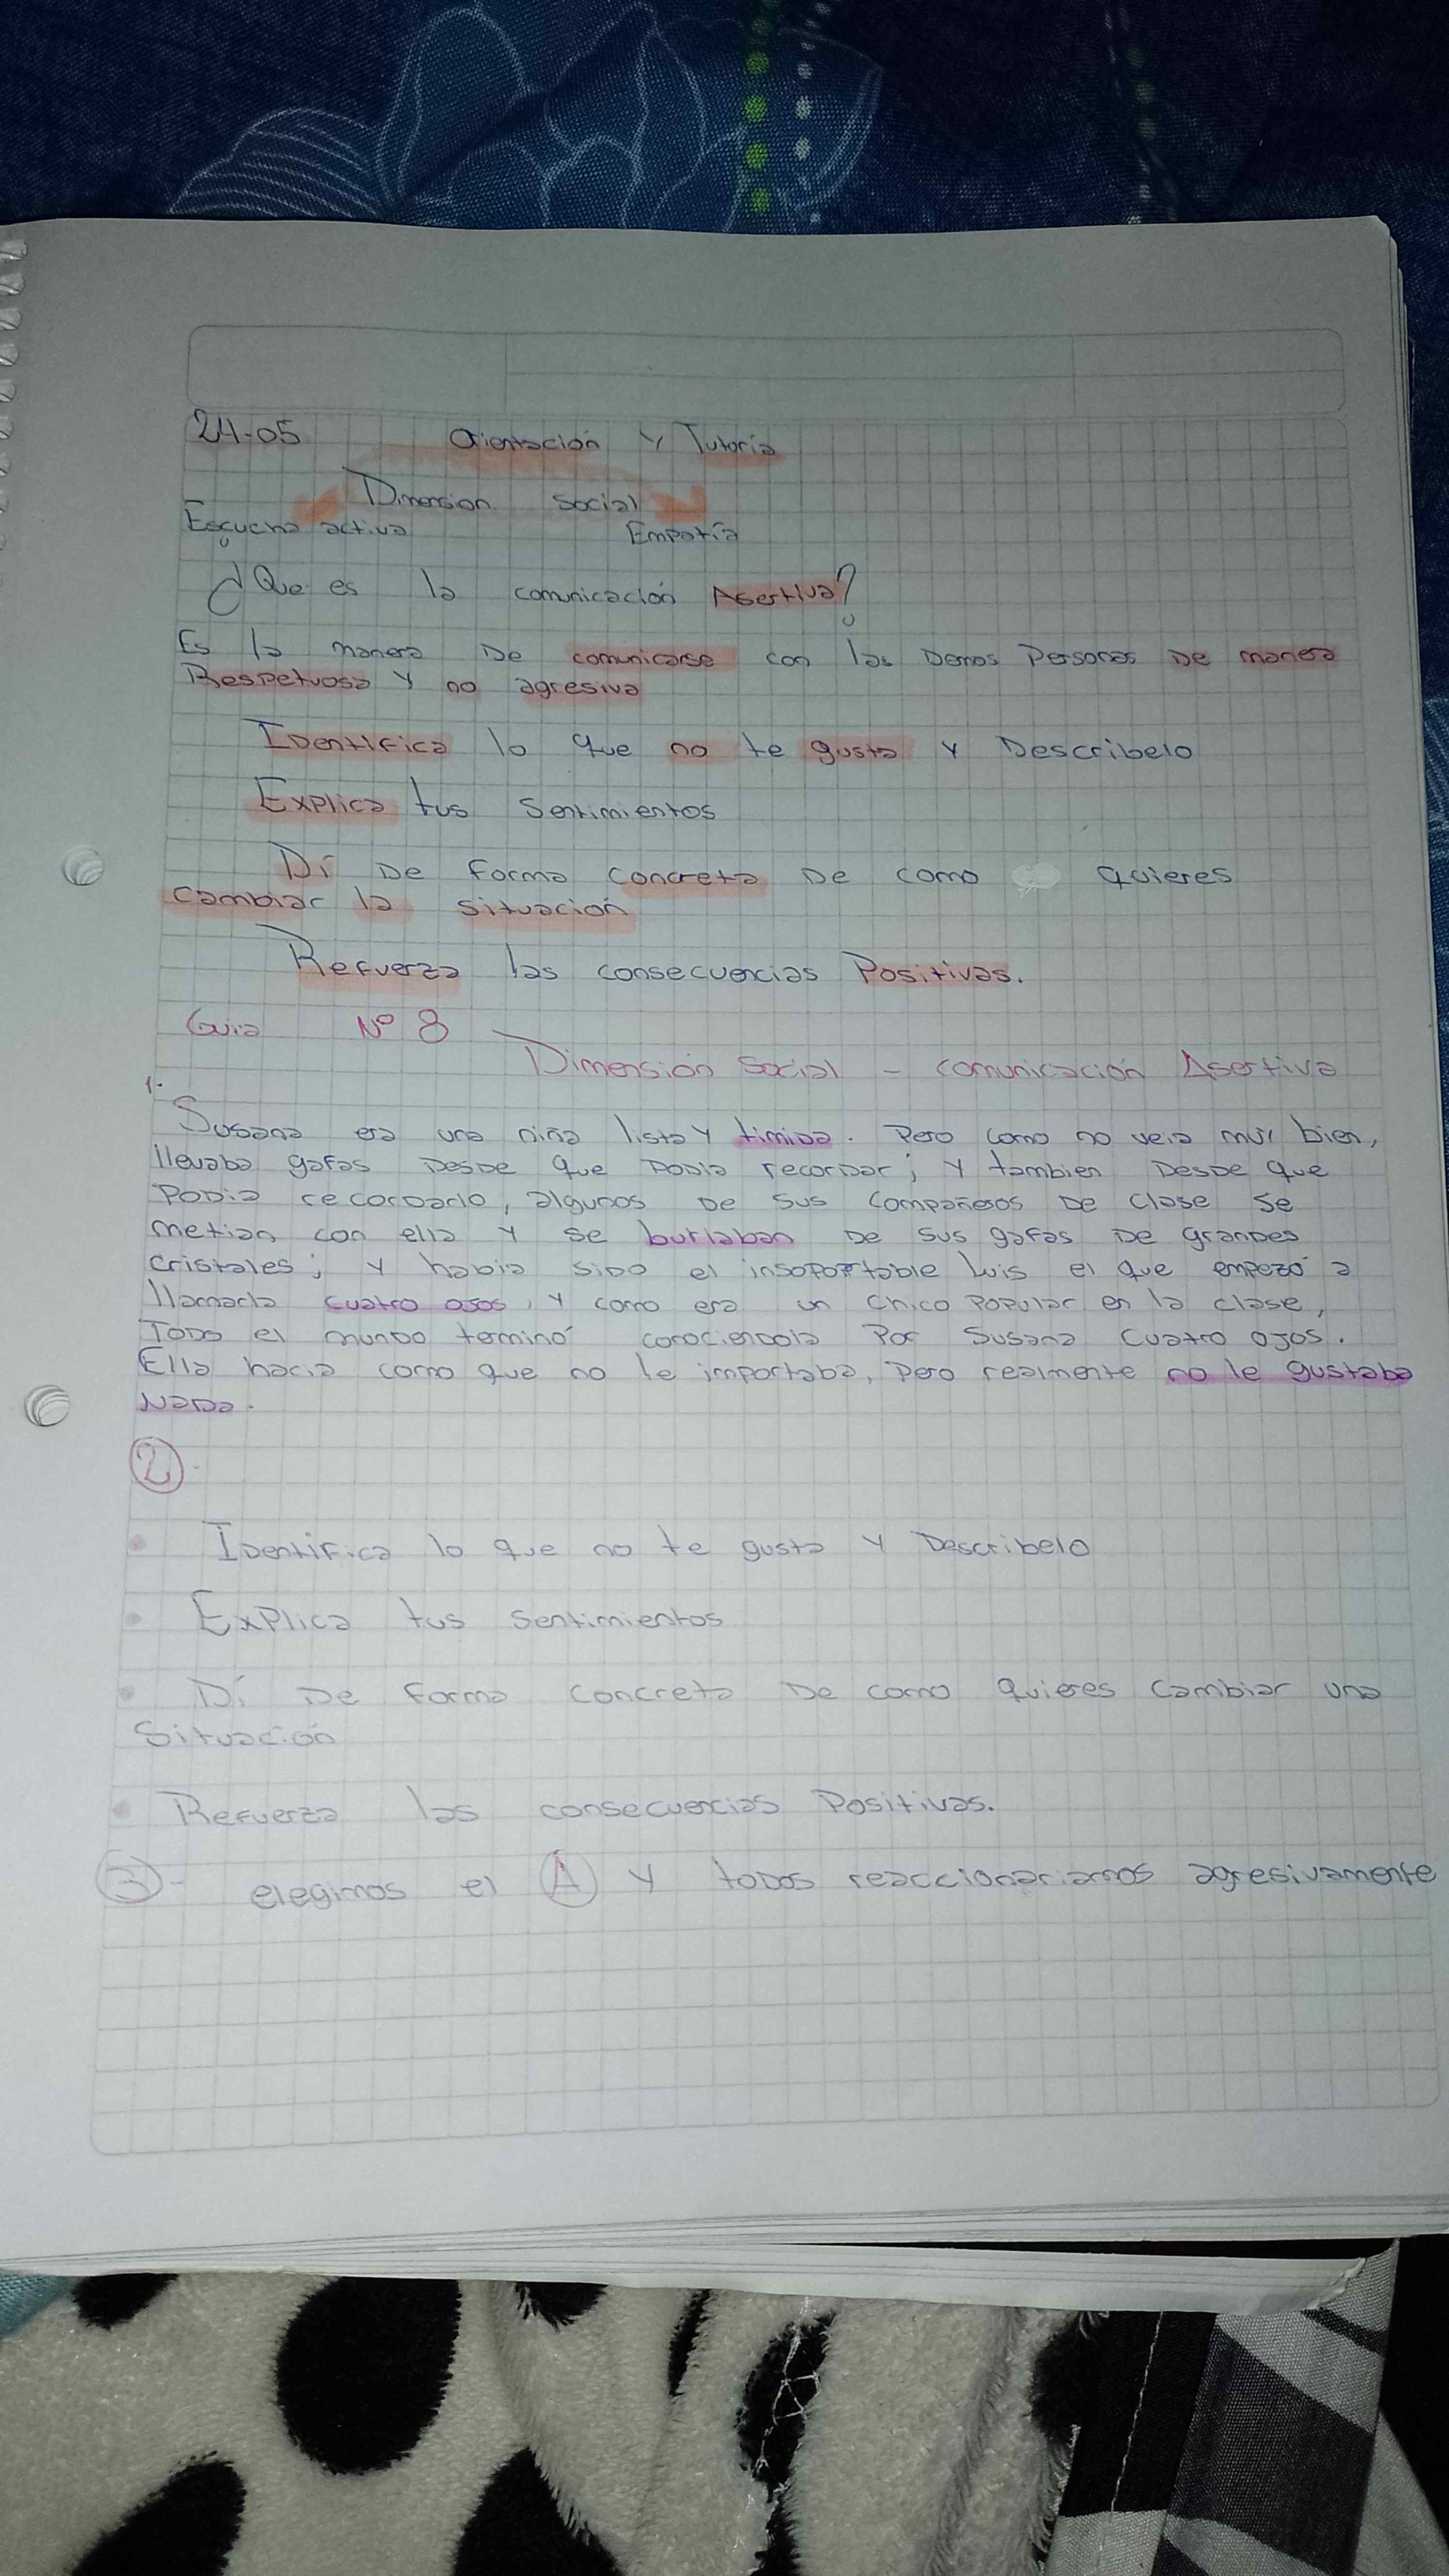 24-05 Orientación y Tutoría
Dimension social
Escucha activa Empatía
¿Que es la comunicación Asertiva?
Es la manera De comunicarse con las Demas Personas De manera
Respetuosa y no agresiva
Identifica lo que no te gusta y Describelo
Explica tus Sentimientos
Dí De forma concreta De como quieres
cambiar la situación
Refuerza las consecuencias Positivas.
Guia N° 8
Dimensión Social - comunicación Asertiva
1.
Susana era una niña lista y timida. Pero como no veia muy bien,
llevaba gafas Desde que Podia recordar; y tambien Desde que
Podia recordarlo, algunos De Sus Compañeros De Clase Se
metian con ella y se burlaban De Sus gafas De grandes
cristales; y habia sido el insoportable Luis el que empezó a
llamarla cuatro ojos, y como era un Chico Popular en la clase,
Todo el mundo terminó conociendola Por Susana Cuatro ojos.
Ella hacia como que no le importaba, Pero realmente no le gustaba
Nada.
2
Identifica lo que no te gusta y Describelo
Explica tus Sentimientos
Dí De forma concreta De como quieres Cambiar una
Situación
Refuerza las consecuencias Positivas.
3- elegimos el A y todos reaccionariamos agresivamente